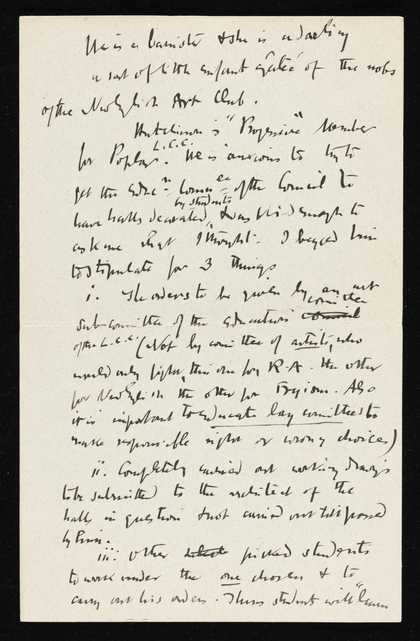 He is a barrister & she is a darling
a sort of little enfant gâtée of the nobs
of the New English Art Club.
Hutchinson is "Progressive" Member
for Poplar L.C.C. He is anxious to try to
get the Educn. Comee of the Council to
have halls decorated by students, & was kind enough to
ask me what I thought. I begged him
to stipulate for 3 things.
i. The orders to be given by an art
sub-committee of the Education Committee
of the L.C.C. (Not by committee of artists, who
would only fight, this one for R.A. the other
for New English the other for Fry and so on. Also
it is important to educate lay committees to
make responsible right or wrong choices)
ii. Completely carried out working drawings
to be submitted to the architect of the
halls in question & not carried out till passed
by him.
iii. Other picked students
to work under the one chosen & to
carry out his orders. These students will "learn